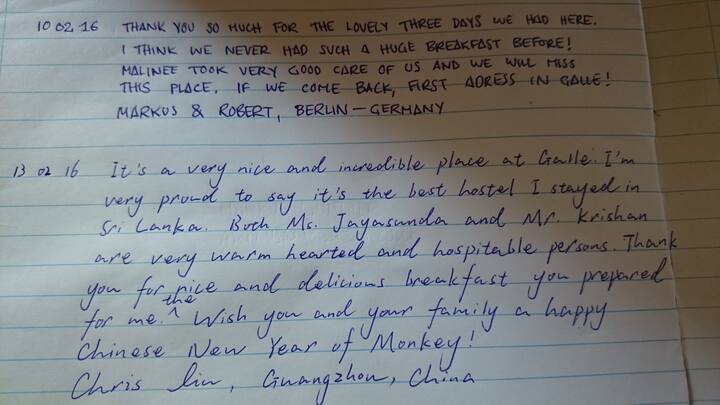 10 02 16 THANK YOU SO MUCH FOR THE LOVELY THREE DAYS WE HAD HERE.
I THINK WE NEVER HAD SUCH A HUGE BREAKFAST BEFORE!
MALINEE TOOK VERY GOOD CARE OF US AND WE WILL MISS
THIS PLACE. IF WE COME BACK, FIRST ADRESS IN GALLE!
MARKUS & ROBERT, BERLIN – GERMANY
13 02 16 It's a very nice and incredible place at Galle. I'm
very proud to say it's the best hostel I stayed in
Sri Lanka. Both Ms. Jayasunda and Mr. Krishan
are very warm hearted and hospitable persons. Thank
you for the nice and delicious breakfast you prepared
for me. Wish you and your family a happy
Chinese New Year of Monkey!
Chris Liu, Guangzhou, China